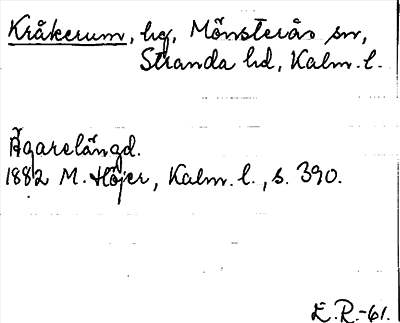 Kråkerum, hg, Mönsterås sn,
Stranda hd, Kalm. l.
Ägarelängd.
1882 M. Höjer, Kalm. l., s. 390.
E.R.-61.